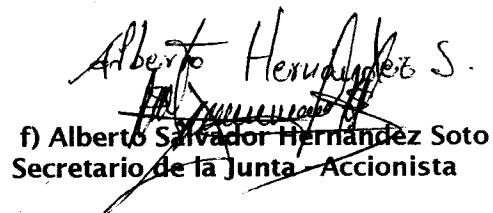 Alberto Hernández S.
f) Alberto Salvador Hernández Soto
Secretario de la Junta - Accionista